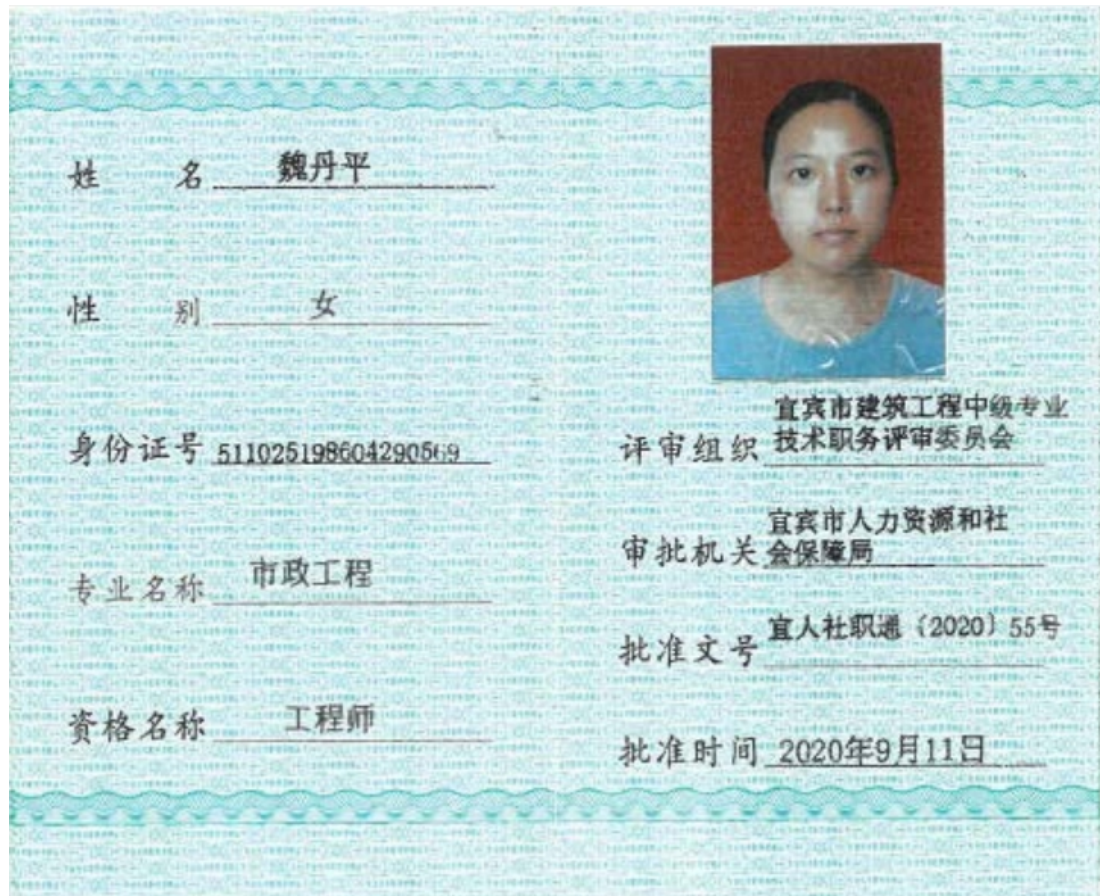 姓名 魏丹平
性别 女
身份证号 511025198604290569
专业名称 市政工程
资格名称 工程师
宜宾市建筑工程中级专业
评审组织 技术职务评审委员会
宜宾市人力资源和社
审批机关 会保障局
批准文号 宜人社职通〔2020〕55号
批准时间 2020年9月11日